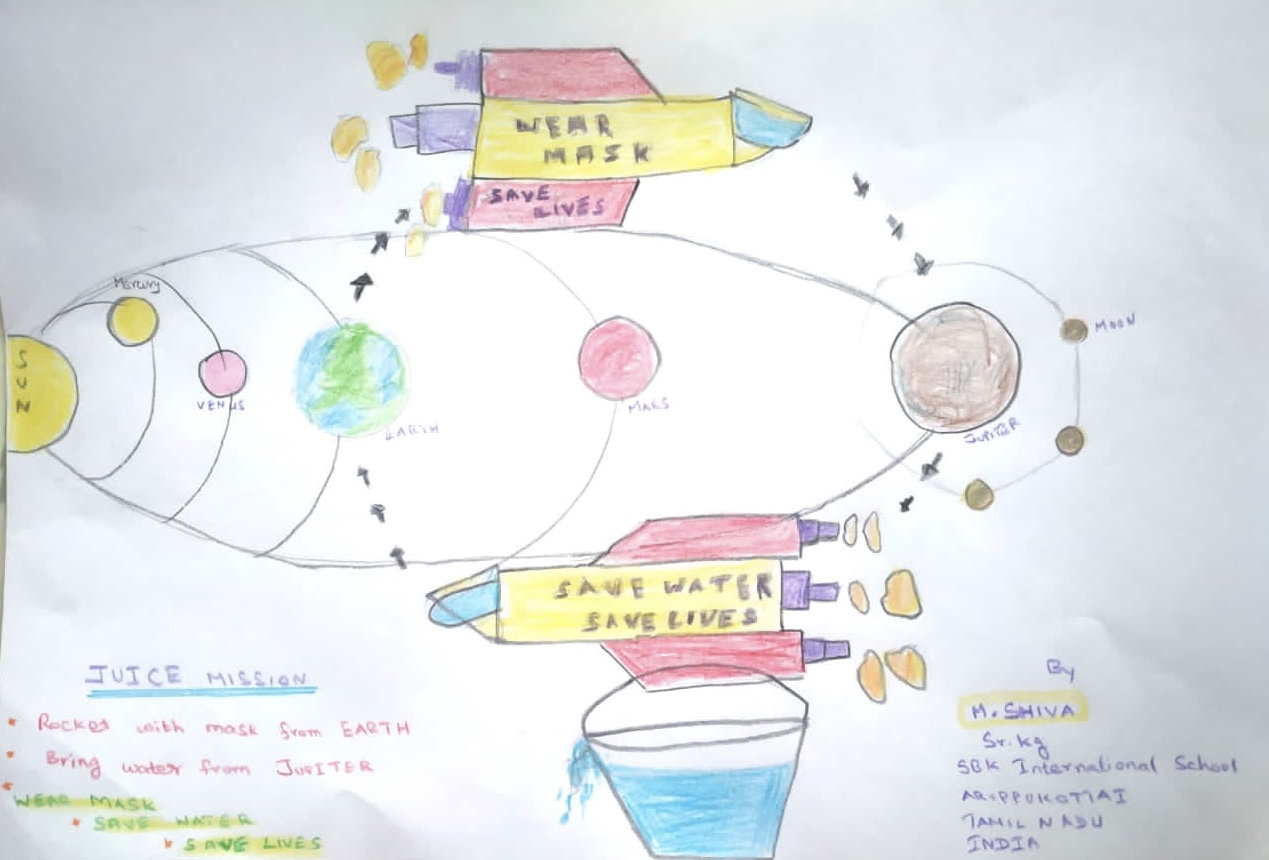 WEAR
MASK
SAVE
LIVES
Mercury
SUN
VENUS
EARTH
MARS
JUPITER
MOON
SAVE WATER
SAVE LIVES
JUICE MISSION
Rocket with mask from EARTH
Bring water from JUPITER
WEAR MASK
SAVE WATER
SAVE LIVES
By
M. SHIVA
Sr. kg
SBK International School
ARUPPUKOTTAI
TAMIL NADU
INDIA